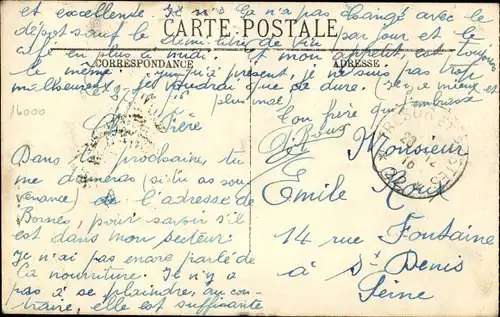 CARTE POSTALE
CORRESPONDANCE
ADRESSE
16000
Cher Frère
Dans ta prochaine, tu
me donneras (si tu as sou-
venance) de l'adresse de
Bornes, pour savoir s'il
est dans mon secteur.
Je n'ai pas encore parlé de
la nourriture. Je n'y a
pas à se plaindre, au con-
traire, elle est suffisante
et excellente. Je n'os Ça n'a pas changé avec le
dépôt sauf le demi litre de vin par jour et le
café en plus à midi. Et mon appétit est toujours
le même. jusqu'à présent, je ne suis pas trop
malheureux, je voudrai que ça dure. (Je mieux et
pas plus mal
ton frère qui t'embrasse
Monsieur
Emile Roux
14 rue Fontaine
à St Denis
Seine